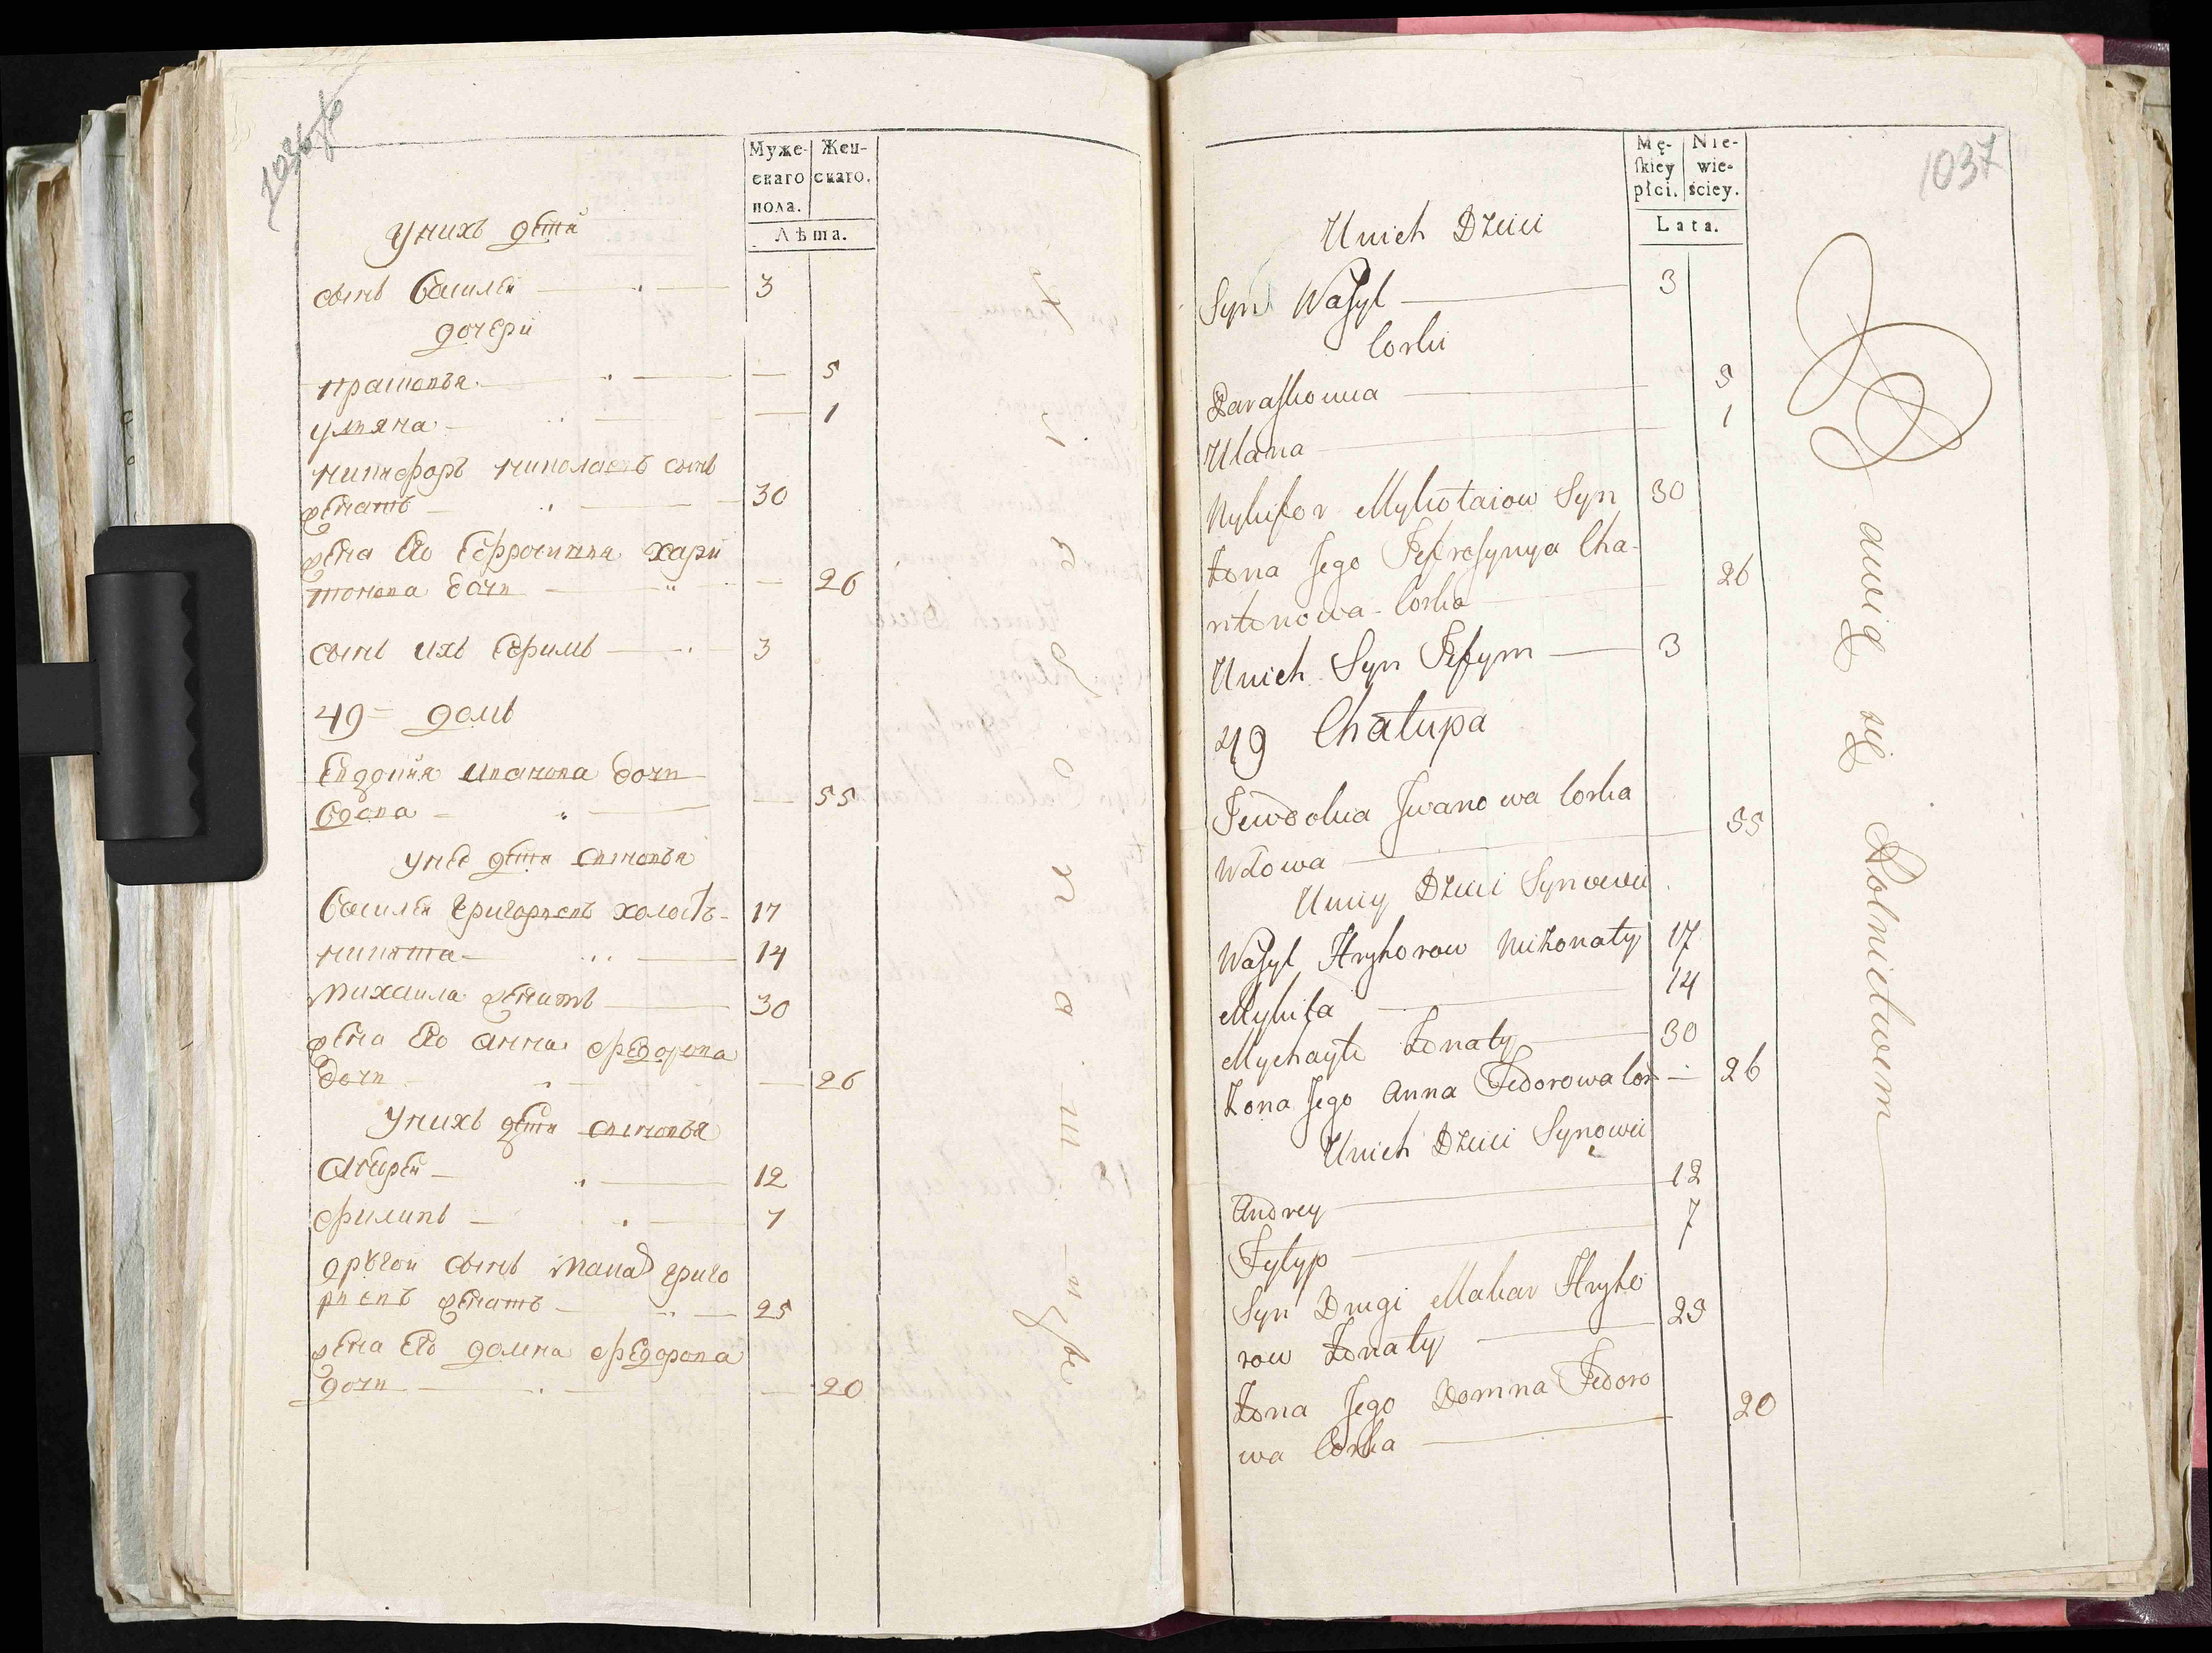 Муже-
скаго
пола.
Жен-
скаго.
Лѣта.
у нихъ дѣти
сынъ василей 3
дочери
прасковья — 5
уляна — 1
никифоръ николаевъ сынъ
женатъ 30
жена его ефросинья хари
тонова дочь — 26
сынъ ихъ ефимъ 3
49 = домъ
евдокия иванова дочь
вдова — 55
у неё дѣти сыновья
василей григорьевъ холостъ 17
никита 14
михаила женатъ 30
жена его анна федорова
дочь — 26
у нихъ дѣти сыновья
андрей 12
филипъ 7
другой сынъ макаръ григо
рьевъ женатъ 25
жена его домна федорова
дочь — 20
1037
Mę-
skiey
płci.
Nie-
wie-
ściey.
Lata.
Unich Dzieci
Syn Wasyl 3
Corki
Paraskowia 5
Ulana 1
Nykifor Mykołaiow Syn 30
Żona Jego Jefrosynya Cha-
ritonowa Corka 26
Unich Syn Jefym 3
49 Chałupa
Jewdokia Jwanowa Corka
Wdowa 55
Uniey Dzieci Synowie
Wasyl Hryhorow nieżonaty 17
Mykita 14
Mychayło Żonaty 30
Żona Jego Anna Fedorowa Cor — 26
Unich Dzieci Synowie
Andrey 12
Fylyp 7
Syn Drugi Makar Hryho
row Żonaty 25
Żona Jego Domna Fedoro
wa Corka 20
Bawią się Rolnictwem